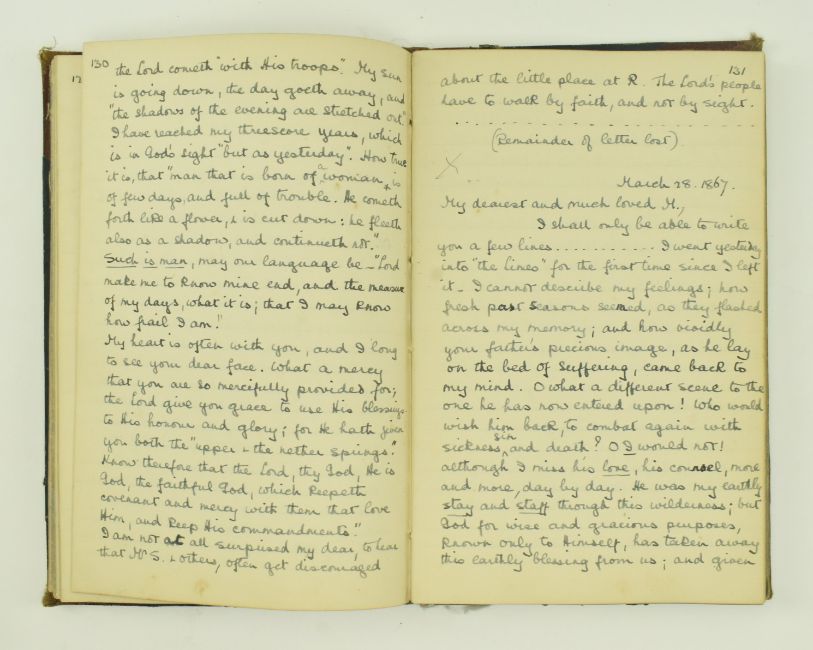 130
the Lord cometh "with His troops". My sun
is going down, the day goeth away, and
"the shadows of the evening are stretched out."
I have reached my threescore years, which
is in God's sight "but as yesterday". How true
it is, that "man that is born of a woman, is
of few days, and full of trouble. He cometh
forth like a flower, & is cut down: he fleeth
also as a shadow, and continueth not."
Such is man, may our language be - "Lord
make me to know mine end, and the measure
of my days, what it is; that I may know
how frail I am."
My heart is often with you, and I long
to see your dear face. What a mercy
that you are so mercifully provided for;
the Lord give you grace to use His blessings
to His honour and glory; for He hath given
you both the "upper & the nether springs."
Know therefore that the Lord, thy God, He is
God, the faithful God, which keepeth
covenant and mercy with them that love
Him, and keep His commandments."
I am not at all surprised my dear, to hear
that Mr S. & others, often get discouraged
131
about the little place at R. The Lord's people
have to walk by faith, and not by sight.
(Remainder of letter lost)
X
March 28. 1867.
My dearest and much loved M.,
I shall only be able to write
you a few lines ............ I went yesterday
into "the lines" for the first time since I left
it. I cannot describe my feelings; how
fresh past seasons seemed, as they flashed
across my memory; and how vividly
your father's precious image, as he lay
on the bed of suffering, came back to
my mind. O what a different scene to the
one he has now entered upon! Who would
wish him back, to combat again with
sickness, sin and death? O I would not!
although I miss his love, his counsel, more
and more, day by day. He was my earthly
stay and staff through this wilderness; but
God for wise and gracious purposes,
known only to Himself, has taken away
this earthly blessing from us; and given